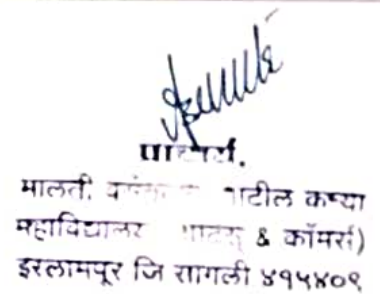 प्राचार्य.
मालती पाटील कन्या
महाविद्यालय & कॉमर्स)
इस्लामपूर जि सांगली ४१५४०९